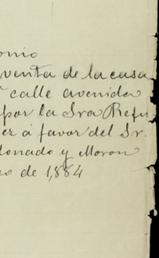 onio
venta de la casa
calle avenida
por la Sra Refu
ez á favor del Sr.
donado y Moron
o de 1,884